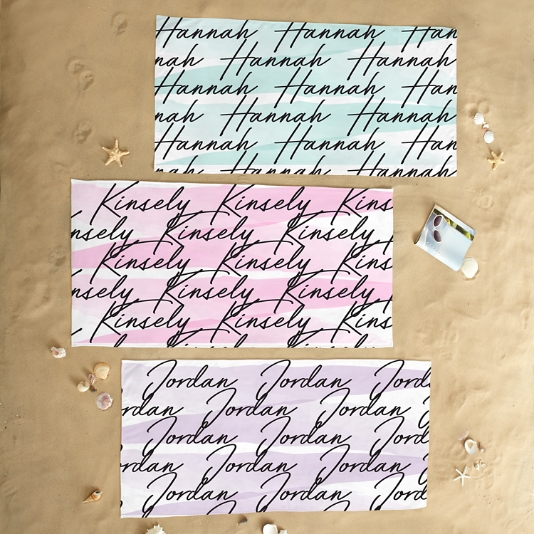 Hannah Hannah Han
nah Hannah Hannah
Hannah Hannah Han
nah Hannah Hannah
Hannah Hannah Han
nah Hannah Hannah
Kinsely Kinsely Kins
nsely Kinsely Kinsely
Kinsely Kinsely Kins
nsely Kinsely Kinsely
Kinsely Kinsely Kins
Jordan Jordan Jord
rdan Jordan Jordan
Jordan Jordan Jord
rdan Jordan Jordan
Jordan Jordan Jord